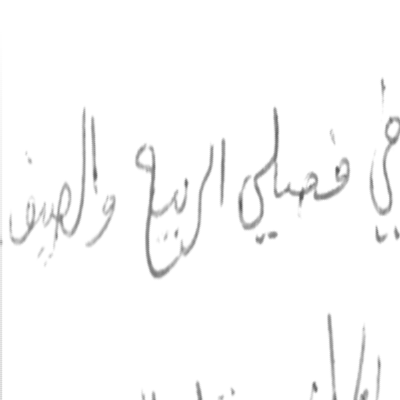 في فصلي الربيع والصيف